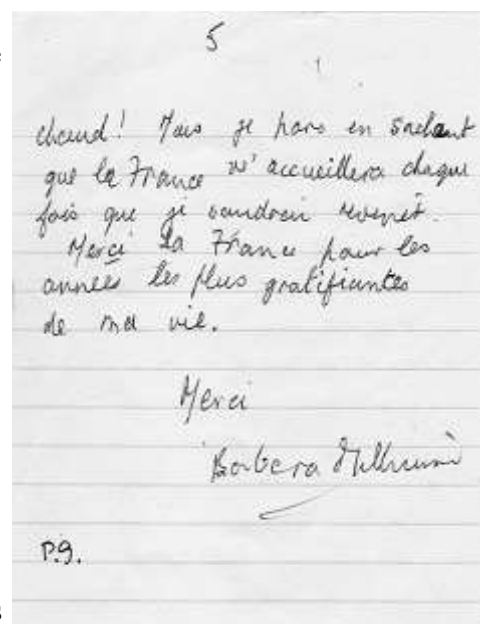 5
chaud! Mais je pars en sachant
que la France m'accueillera chaque
fois que je voudrai revenir.
Merci la France pour les
années les plus gratifiantes
de ma vie.
Merci
Barbara